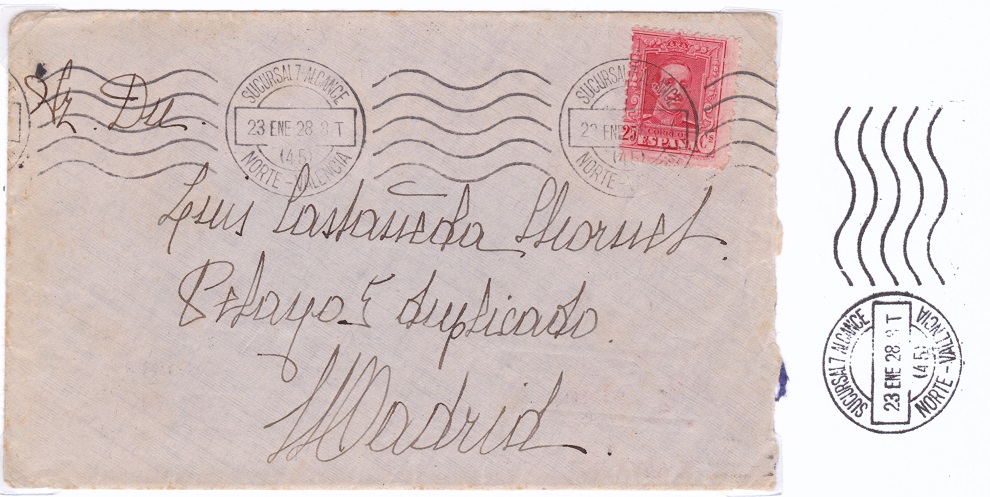 Sr. Dn.
SUCURSAL 7 ALCANCE
23 ENE 28. 8 T
(45)
NORTE - VALENCIA
SUCURSAL
23 ENE
NORTE -
25 CORREOS Cs
ESPAÑA
Luis Castañeda
Pelayo 5 duplicado.
Madrid.
SUCURSAL 7 ALCANCE
23 ENE 28. 8 T
(45)
NORTE - VALENCIA